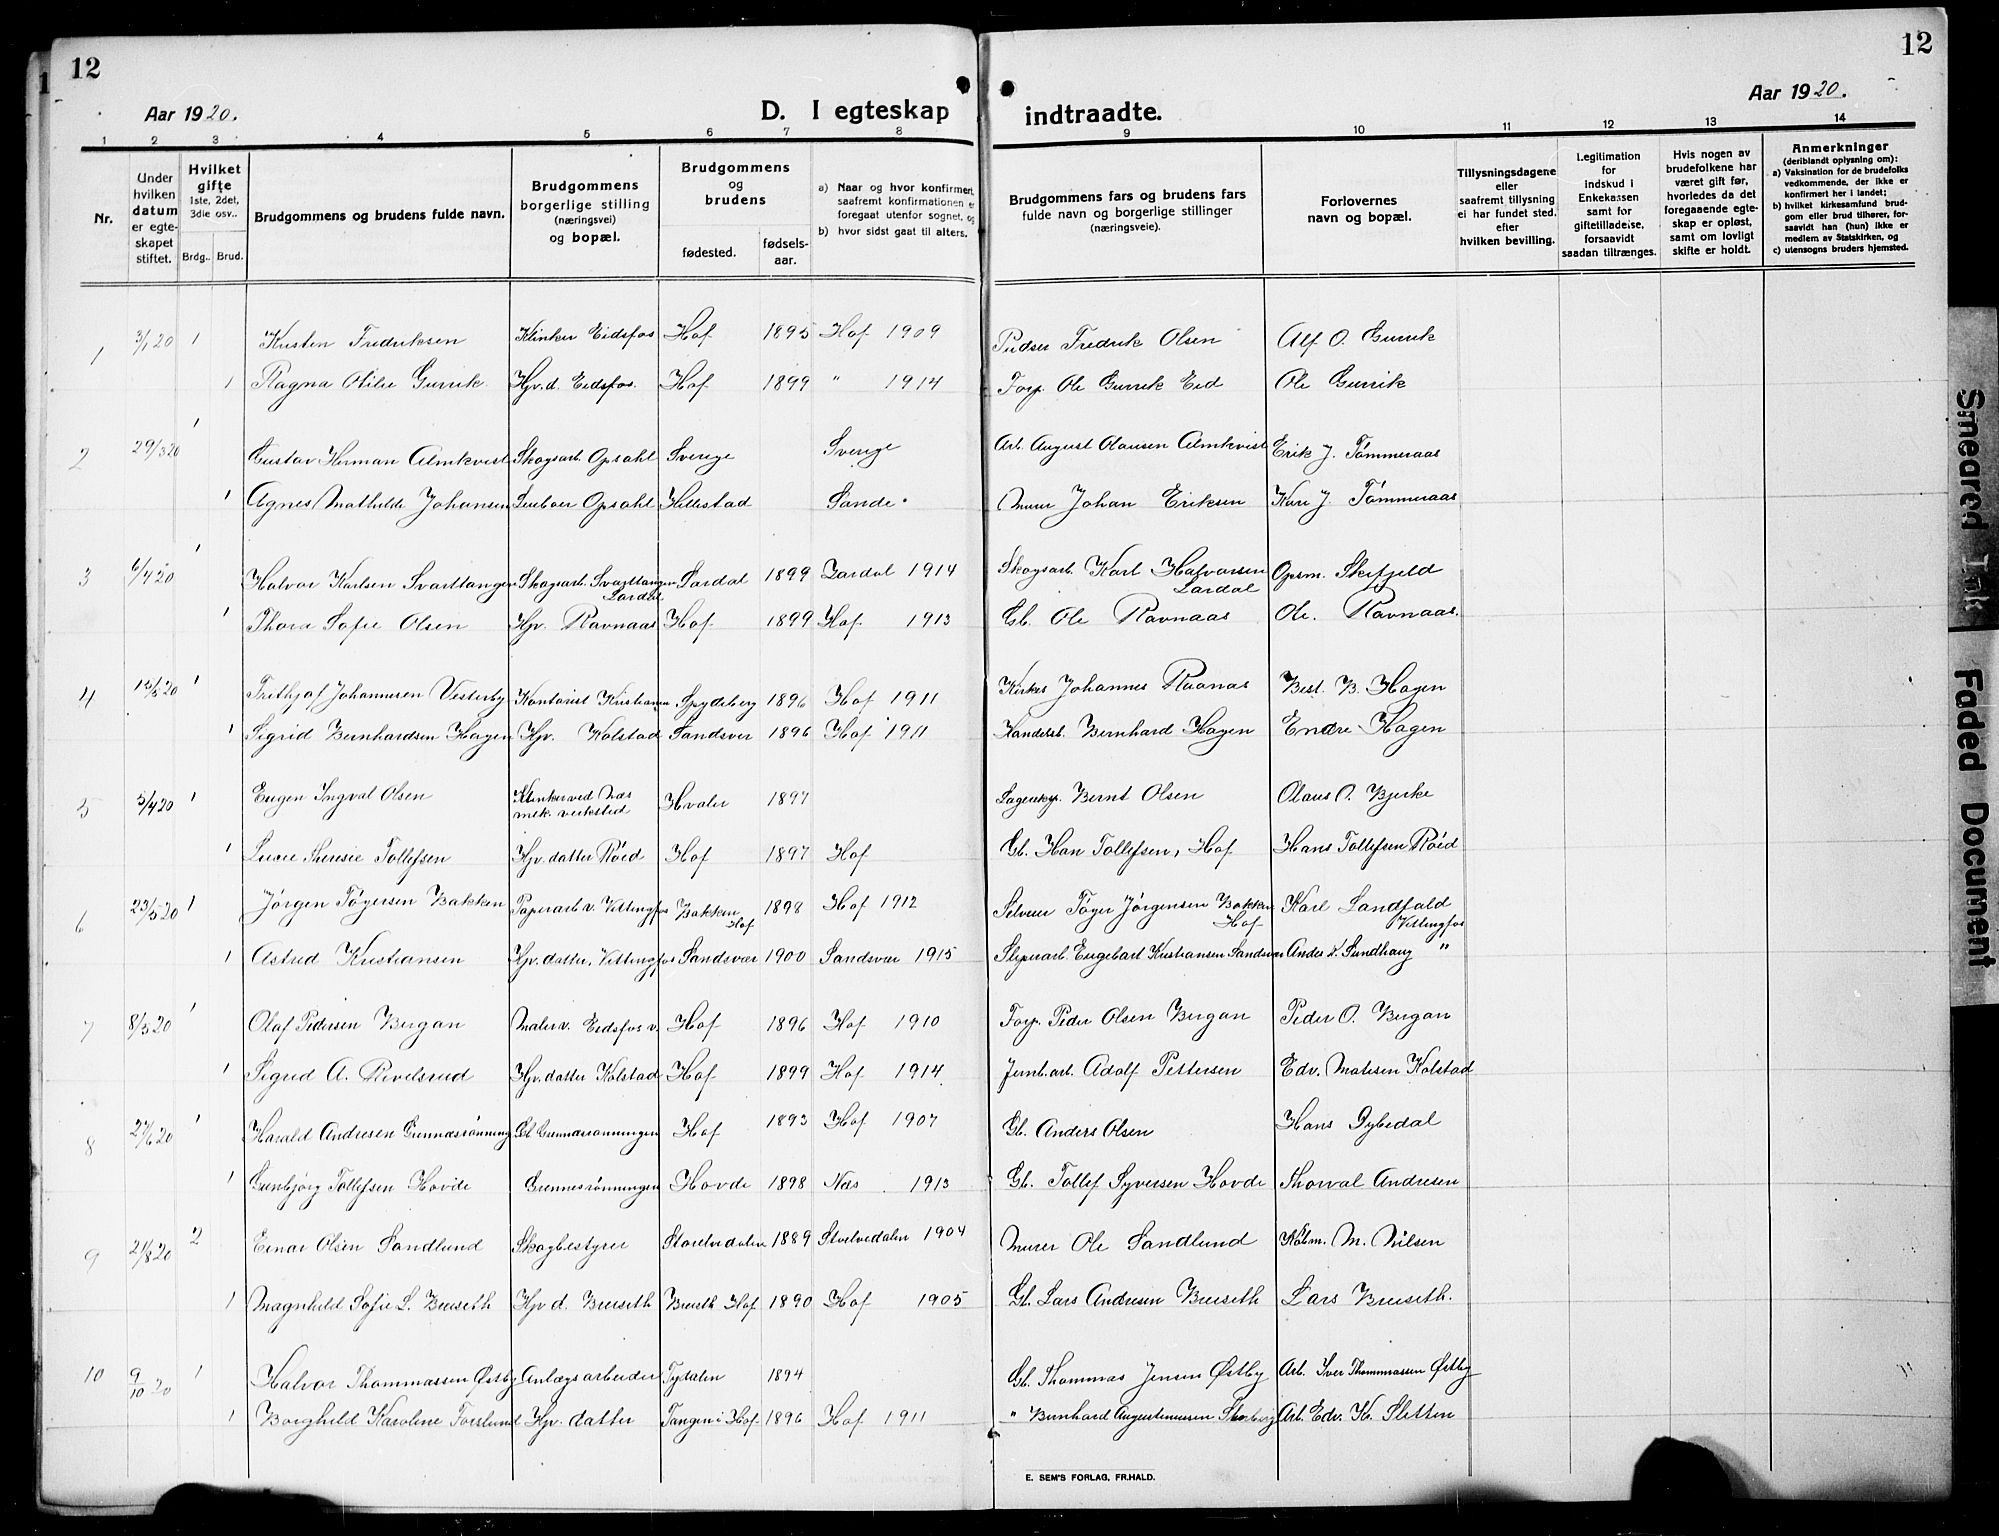 12
12
Aar 1920.
D. I egteskap indtraadte.
Aar 1920.
1 2 3 4 5 6 7 8 9 10 11 12 13 14
Nr.
Under hvilken datum er egteskapet stiftet.
Hvilket gifte 1ste, 2det, 3die osv.. Brdg.. Brud.
Brudgommens og brudens fulde navn.
Brudgommens borgerlige stilling (næringsvei) og bopæl.
Brudgommens og brudens
fødested. fødsels-aar.
a) Naar og hvor konfirmert, saafremt konfirmationen er foregaat utenfor sognet, og
b) hvor sidst gaat til alters.
Brudgommens fars og brudens fars fulde navn og borgerlige stillinger (næringsveie).
Forlovernes navn og bopæl.
Tillysningsdagene eller saafremt tillysning ei har fundet sted, efter hvilken bevilling.
Legitimation for indskud i Enkekassen samt for giftetilladelse, forsaavidt saadan tiltrænges.
Hvis nogen av brudefolkene har været gift før, hvorledes da det foregaaende egteskap er opløst, samt om lovligt skifte er holdt.
Anmerkninger (deriblandt oplysning om):
a) Vaksination for de brudefolks vedkommende, der ikke er konfirmert her i landet;
b) hvilket kirkesamfund brudgom eller brud tilhører, forsaavidt han (hun) ikke er medlem av Statskirken, og
c) utensogns bruders hjemsted.
1 3/1 20 1 Kristen Fredriksen Klinker Eidsfos Hof 1895 Hof 1909 Pudser Fredrik Olsen Alf O. Gurrik
1 Ragna Otilie Gurrik Hjv. d. Eidsfos. Hof 1899 " 1914 Forp. Ole Gurrik Eid Ole Gurrik
2 29/3 20 1 Gustav Herman Almkvist Skogsarb. Opsahl Sverige Sverige Arb. August Olausen Almkvist Erik J. Tømmeraas
1 Agnes Mathilde Johansen Opsahl Hillestad Sande. Murer Johan Eriksen Kare J. Tømmeraas
3 6/4 20 1 Halvor Karlsen Svarttangen Skogsarb. Svarttangen Lardal Lardal 1899 Lardal 1914 Skogsarb. Karl Halvorsen Lardal Opsm. Skifjeld
1 Thora Sofie Olsen Hjv. Ravnaas Hof 1899 Hof 1913 Gb. Ole Ravnaas Ole. Ravnaas.
4 15/5 20 1 Frithjof Johannesen Vesterby Kontorist Kristiania Spydeberg 1896 Hof 1911 Kirkes Johannes Raanas Best. B. Hagen
1 Sigrid Bernhardsen Hagen Hjv. Kolstad Sandsver 1896 Hof 1911 Handelsb. Bernhard Hagen Endre Hagen
5 5/4 20 1 Eugen Ingval Olsen Klinker ved Næs mek. verksted Hvaler 1897 Bernt Olsen Olaus O. Bjerke
1 Lucie Theresie Tollefsen Hjv. datter Røed Hof 1897 Hof Gb. Han Tollefsen, Hof Hans Tollefsen Røed
6 23/5 20 1 Jørgen Tøgersen Bakken Papirarb. v. Vittingfos Bakken Hof 1898 Hof 1912 Selveier Tøger Jørgensen Bakken Hof Karl Landfald Vittingfos
1 Astrid Kristiansen Hjv. datter, Vittingfos Sandsvær 1900 Sandsvær 1915 Sliperarb. Engebart Kristiansen Sandsvær Anders Sundhaug "
7 8/5 20 1 Olaf Pedersen Bergan Maler v. Eidsfos v. Hof 1896 Hof 1910 Forp. Peder Olsen Bergan Peder O. Bergan
1 Sigrid A. Revelsrud Hjv. datter Kolstad Hof 1899 Hof 1914. Jernb. arb. Adolf Pettersen Edv. Matesen Kolstad
8 27/6 20 1 Harald Andresen Grennesrønning Gb. Grennesrønningen Hof 1893 Hof 1907 Gb. Anders Olsen Hans Dybedal
1 Gunbjørg Tollefsen Hovde Grennesrønningen Hovde 1898 Næs 1913 Gb. Tollef Syversen Hovde Thorval Andresen
9 21/8 20 2 Einar Olsen Sandlund Skogbestyrer Storelvedalen 1889 Storelvedalen 1904 Murer Ole Sandlund Købm. M. Nilsen
1 Magnhild Sofie L. Bueseth Hjv. d. Bueseth Bueseth Hof 1890 Hof 1905 Gb. Lars Andresen Bueseth Lars Bueseth.
10 9/10 20 1 Halvor Thommassen Østby Anlægsarbeider Tydalen 1894 Gb. Thommas Jensen Østby Arb. Iver Thommassen Østby
1 Borghild Karoline Forslund Hjv. datter Tangen i Hof 1896 Hof 1911 " Bernhard Augustinussen Arb. Edv. K. Sletten
E. SEM'S FORLAG, FR.HALD.
Smeared Ink
Faded Document